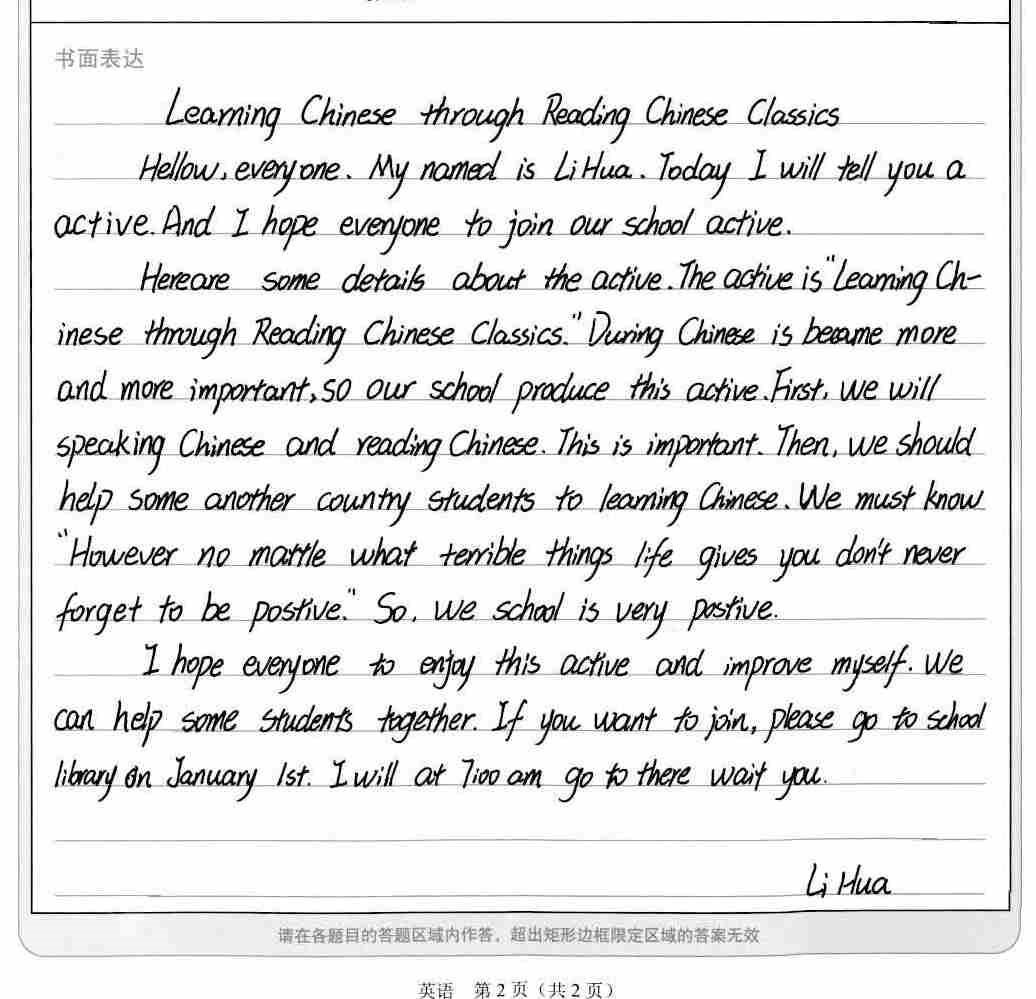 书面表达
Learning Chinese through Reading Chinese Classics
Hellow, everyone. My named is Li Hua. Today I will tell you a
active. And I hope everyone to join our school active.
Hereare some details about the active. The active is "Learning Ch-
inese through Reading Chinese Classics." During Chinese is became more
and more important, so our school produce this active. First, we will
speaking Chinese and reading Chinese. This is important. Then, we should
help some another country students to learning Chinese. We must know
"However no mattle what terrible things life gives you don't never
forget to be postive." So, we school is very postive.
I hope everyone to enjoy this active and improve myself. We
can help some students together. If you want to join, please go to school
library on January 1st. I will at 7:00 am go to there wait you.
Li Hua
请在各题目的答题区域内作答，超出矩形边框限定区域的答案无效
英语 第 2 页（共 2 页）